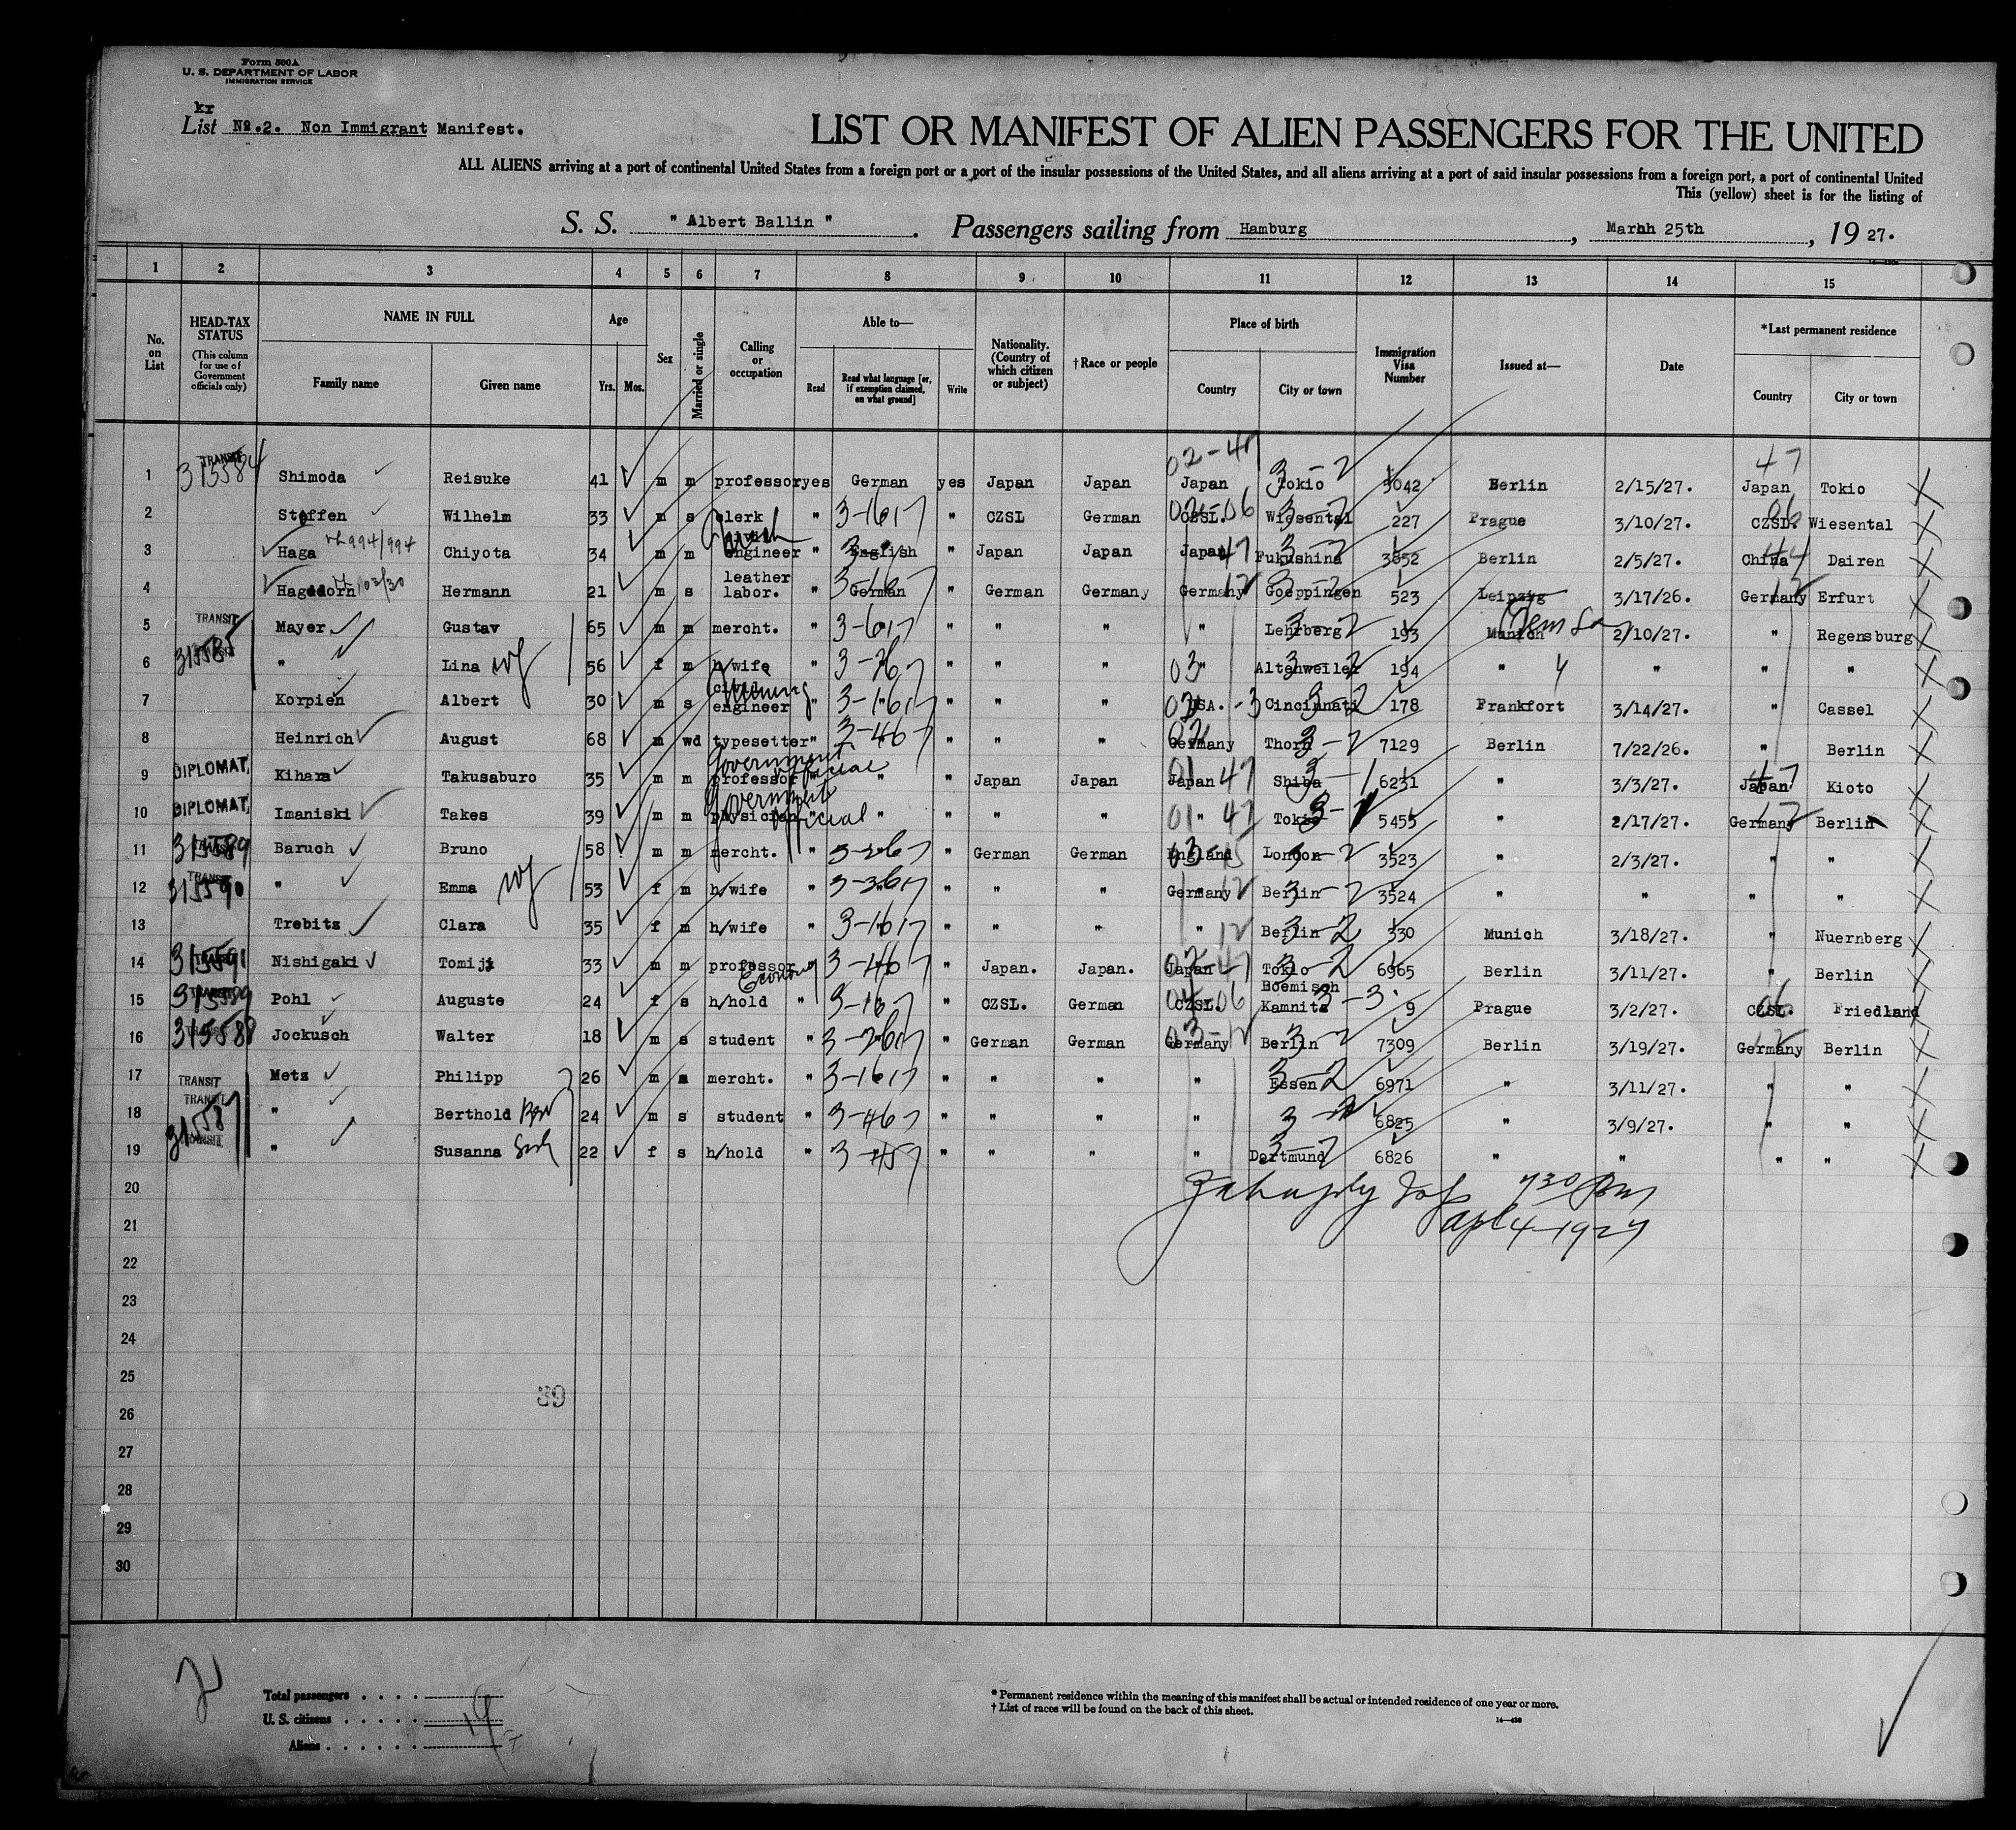 Form 500A
U. S. DEPARTMENT OF LABOR
IMMIGRATION SERVICE
kr
List No.2. Non Immigrant Manifest.
LIST OR MANIFEST OF ALIEN PASSENGERS FOR THE UNITED
ALL ALIENS arriving at a port of continental United States from a foreign port or a port of the insular possessions of the United States, and all aliens arriving at a port of said insular possessions from a foreign port, a port of continental United
This (yellow) sheet is for the listing of
S. S. " Albert Ballin " . Passengers sailing from Hamburg , Marhh 25th , 19 27.
1 2 3 4 5 6 7 8 9 10 11 12 13 14 15
No. on List
HEAD-TAX STATUS (This column for use of Government officials only)
NAME IN FULL
Family name Given name
Age
Yrs. Mos.
Sex
Married or single
Calling or occupation
Able to—
Read
Read what language [or, if exemption claimed, on what ground]
Write
Nationality. (Country of which citizen or subject)
†Race or people
Place of birth
Country City or town
Immigration Visa Number
Issued at—
Date
*Last permanent residence
Country City or town
1 TRANSIT 315584 Shimoda Reisuke 41 m m professor yes German yes Japan Japan 02-47 Japan Tokio 3-2 5042 Berlin 2/15/27. 47 Japan Tokio
2 Steffen Wilhelm 33 m s clerk " 3-1617 " CZSL German CZSL. 06 Wiesental 227 Prague 3/10/27. 06 CZSL. Wiesental
3 Haga 994/994 Chiyota 34 m m civil engineer " English " Japan Japan Japan 47 Fukushina 3-2 3652 Berlin 2/5/27. China 44 Dairen
4 Hagedorn Hermann 21 m s leather labor. " German " German Germany Germany 12 Goeppingen 3-2 523 Leipzyg 3/17/26. Germany 12 Erfurt
5 TRANSIT Mayer Gustav 65 m m mercht. " 3-617 " " " " Lehrberg 3-2 193 Munich 2/10/27. " Regensburg
6 315585 " Lina wf 56 f m h/wife " " " " 03 " Altenweiler 3-2 194 " " " "
7 Korpien Albert 30 m s civil engineer " 3-1617 " " " USA. -3 Cincinnati 3-2 178 Frankfort 3/14/27. " Cassel
8 Heinrich August 68 m wd typesetter " 3-467 " " " Germany Thorn 3-2 7129 Berlin 7/22/26. " Berlin
9 DIPLOMAT. Kihara Takusaburo 35 m m professor Government official " " " Japan Japan 01 Japan 47 Shiba 3-1 6231 " 3/3/27. Japan 47 Kioto
10 DIPLOMAT. Imaniski Takes 39 m m physician Government official " " " " " 01 " 47 Tokio 5455 " 2/17/27. Germany 12 Berlin
11 315589 Baruch Bruno 58 m m mercht. " 3-267 " German German England London 3-2 3523 " 2/3/27. " "
12 TRANSIT 315590 " Emma wf 53 f m h/wife " " " " Germany 12 Berlin 3-2 3524 " " " "
13 Trebitz Clara 35 f m h/wife " 3-1617 " " " " 12 Berlin 3-2 330 Munich 3/18/27. " Nuernberg
14 315591 Nishigaki Tomiji 33 m m professor " 3-1617 " Japan. Japan. Japan 47 Tokio 3-2 6965 Berlin 3/11/27. " Berlin
15 TRANSIT Pohl Auguste 24 f s h/hold " " CZSL. German CZSL. 06 Boemisch Kamnitz 3-3 9 Prague 3/2/27. CZSL. 06 Friedland
16 315588 Jockusch Walter 18 m s student " 3-2617 " German German Germany Berlin 3-2 7309 Berlin 3/19/27. Germany 12 Berlin
17 TRANSIT Metz Philipp 26 m s mercht. " 3-1617 " " " " Essen 3-2 6971 " 3/11/27. " "
18 TRANSIT 315587 " Berthold Bro 24 m s student " 3-467 " " " " 6825 " 3/9/27. " "
19 TRANSIT " Susanna 22 f s h/hold " 3-457 " " " " Dortmund 3-2 6826 " " " "
730 Pm
Apl 4-1927
20
21
22
23
24
25
26
27
28
29
30
Total passengers . . . .
U. S. citizens . . . . .
Aliens . . . . . .
19
* Permanent residence within the meaning of this manifest shall be actual or intended residence of one year or more.
† List of races will be found on the back of this sheet.
14—430